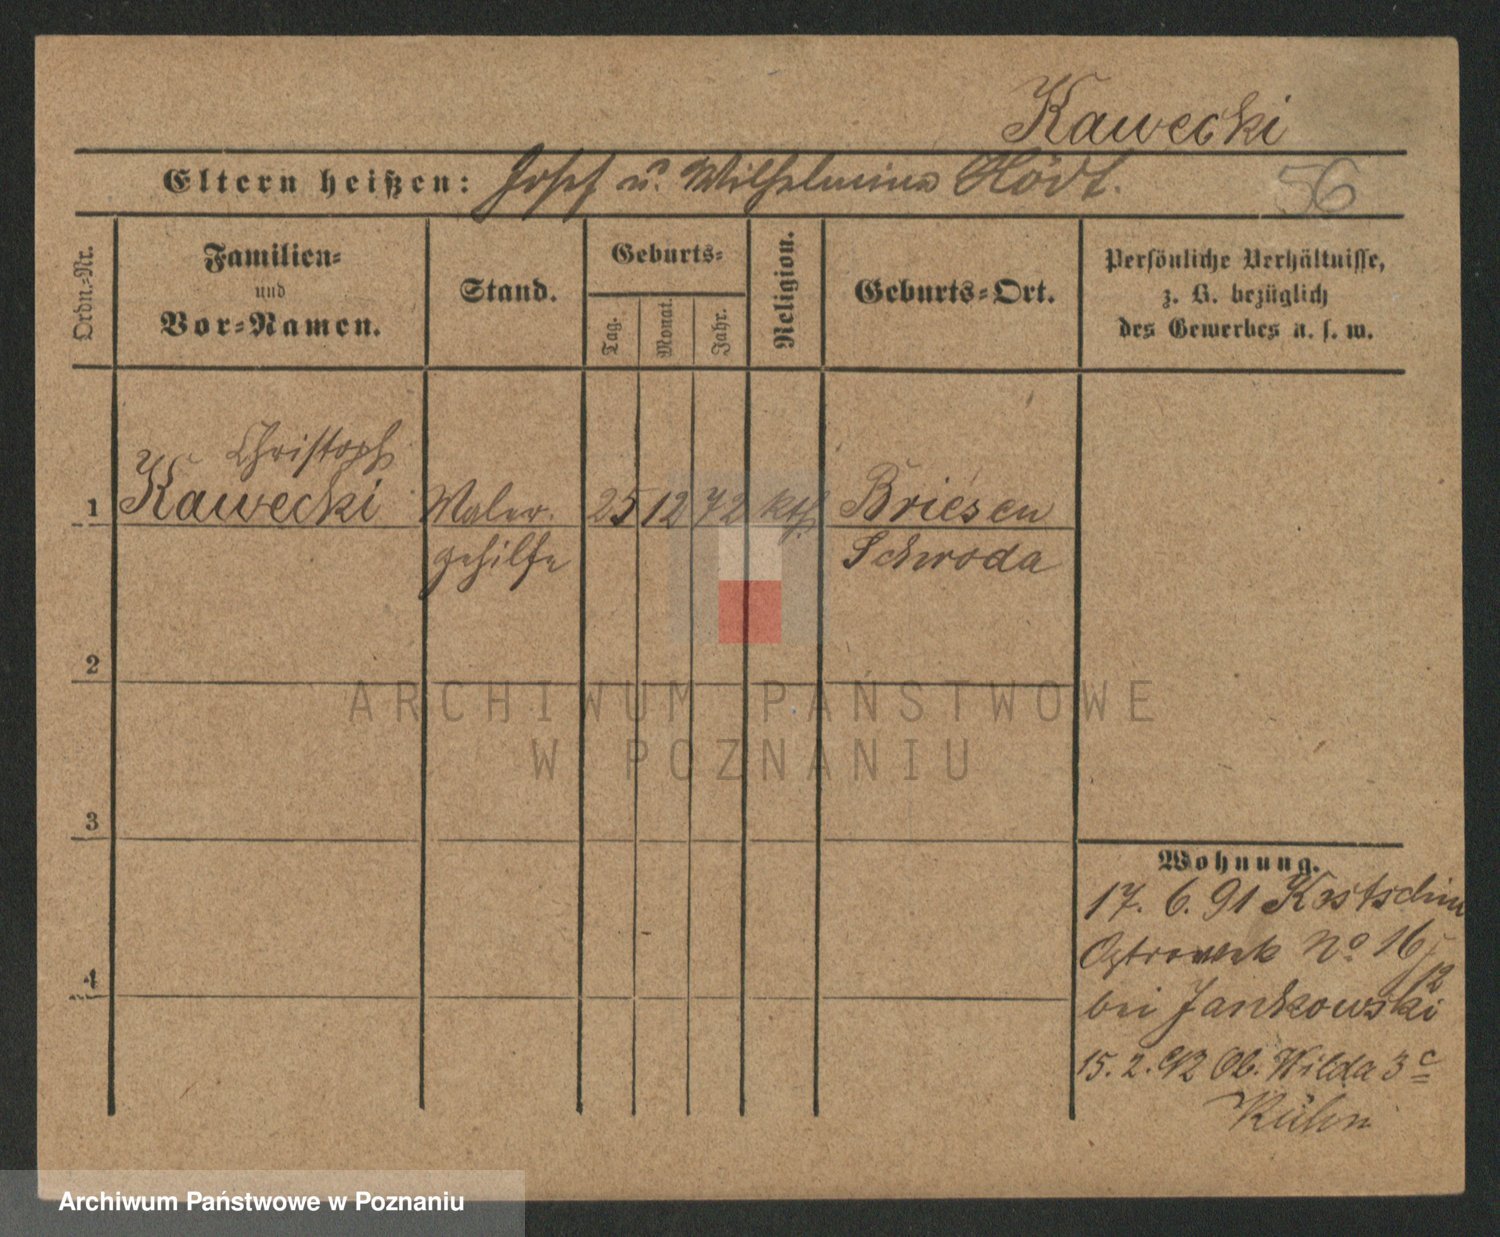 Kawecki
Eltern heißen: Josef u. Wilhelmina Hödt.
56
Ordn.-Nr.
Familien-
und
Vor-Namen.
Stand.
Geburts-
Tag.
Monat.
Jahr.
Religion.
Geburts-Ort.
Persönliche Verhältnisse,
z. B. bezüglich
des Gewerbes u. s. w.
Christoph
1 Kawecki Maler- 25 12 72 kth Briesen
gehilfe Schroda
2
ARCHIWUM PAŃSTWOWE
W POZNANIU
3
Wohnung.
17. 6. 91 Kostschin
Ostrowek No 16
12
bei Jankowski
4
15. 2. 92 Ob. Wilda 3 c
Kühn
Archiwum Państwowe w Poznaniu